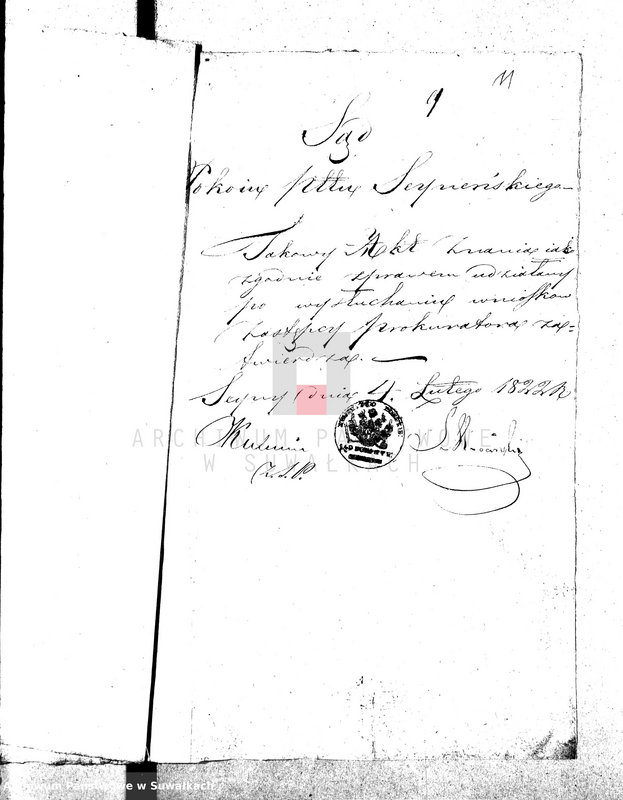 11
9
Sąd
Pokoiu Pttu Seyneńskiego
Takowy Akt Znania iako
zgodnie z prawem udziałany
po wysłuchaniu wniosków
Zastępcy Prokuratora za-
twierdza.
Seyny dnia 4. Lutego 1822 R
ARCHIWUM PAŃSTWOWE
W SUWAŁKACH
Archiwum Państwowe w Suwałkach